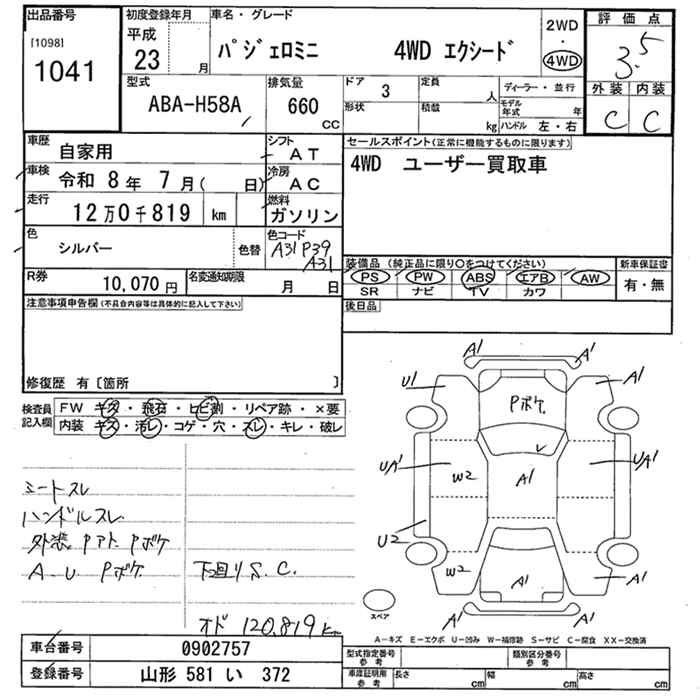 出品番号
[1098]
1041
初度登録年月
平成
23 月
車名・グレード
パジェロミニ 4WD エクシード
2WD
・
4WD
評価点
3.5
外装 内装
C C
型式
ABA-H58A
排気量
660
CC
ドア 3
形状
定員 人
積載 kg
ディーラー・並行
モデル年式 年
ハンドル 左・右
車歴
自家用
シフト
AT
車検
令和 8年 7月( 日)
冷房
AC
走行
12万0千819 km
燃料
ガソリン
色
シルバー
色替
色コード
A31P39
A31
R券
10,070円
名変通知期限
月 日
セールスポイント(正常に機能するものに限ります)
4WD ユーザー買取車
装備品(純正品に限り○をつけてください)
PS PW ABS エアB AW
SR ナビ TV カワ
新車保証書
有・無
後日品
注意事項申告欄(不具合内容等は具体的に記入して下さい)
修復歴 有〔箇所 〕
検査員記入欄
FW キズ・飛石・ヒビ割・リペア跡・×要
内装 キズ・汚レ・コゲ・穴・スレ・キレ・破レ
シートスレ
ハンドルスレ
外装 Pアト Pボケ
A.U Pボケ
下回り S.C.
オド 120,819km
A1 A1
U1 A1
Pボケ
レ
UA1 W2 A1 UA1
U2
W2 A1 A1
A1 A1
スペア
A―キズ E―エクボ U―凹み W―補修跡 S―サビ C―腐食 XX―交換済
車台番号 0902757
登録番号 山形 581 い 372
型式指定番号
参考
類別区分番号
参考
車庫証明用
参考
長さ cm 幅 cm 高さ cm